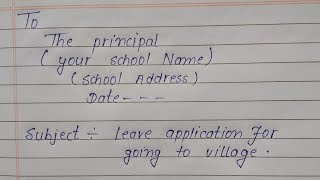 To
The principal
( your school Name)
( School Address)
Date - - -
Subject ÷ Leave application For
going to village .